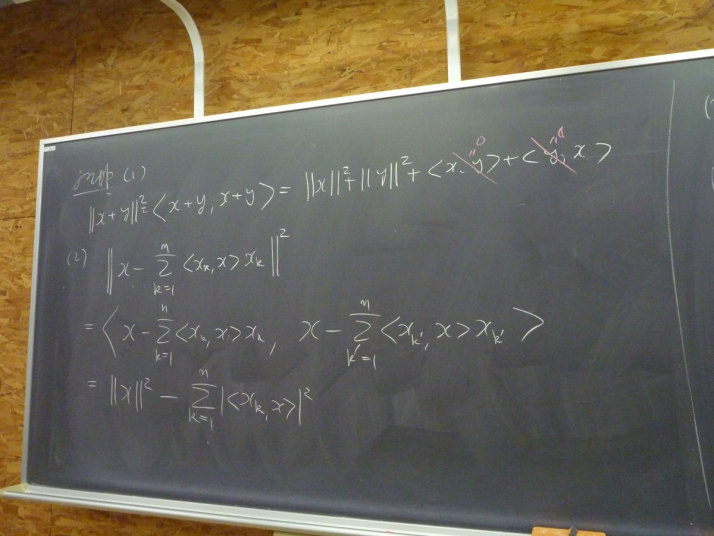 (1)
||x+y||² = <x+y, x+y> = ||x||² + ||y||² + <x, y> + <y, x>
"0 "0
(2) || x - Σ_{k=1}^{n} <x_k, x> x_k ||²
= < x - Σ_{k=1}^{n} <x_k, x> x_k, x - Σ_{k'=1}^{n} <x_{k'}, x> x_{k'} >
= ||x||² - Σ_{k=1}^{n} |<x_k, x>|²